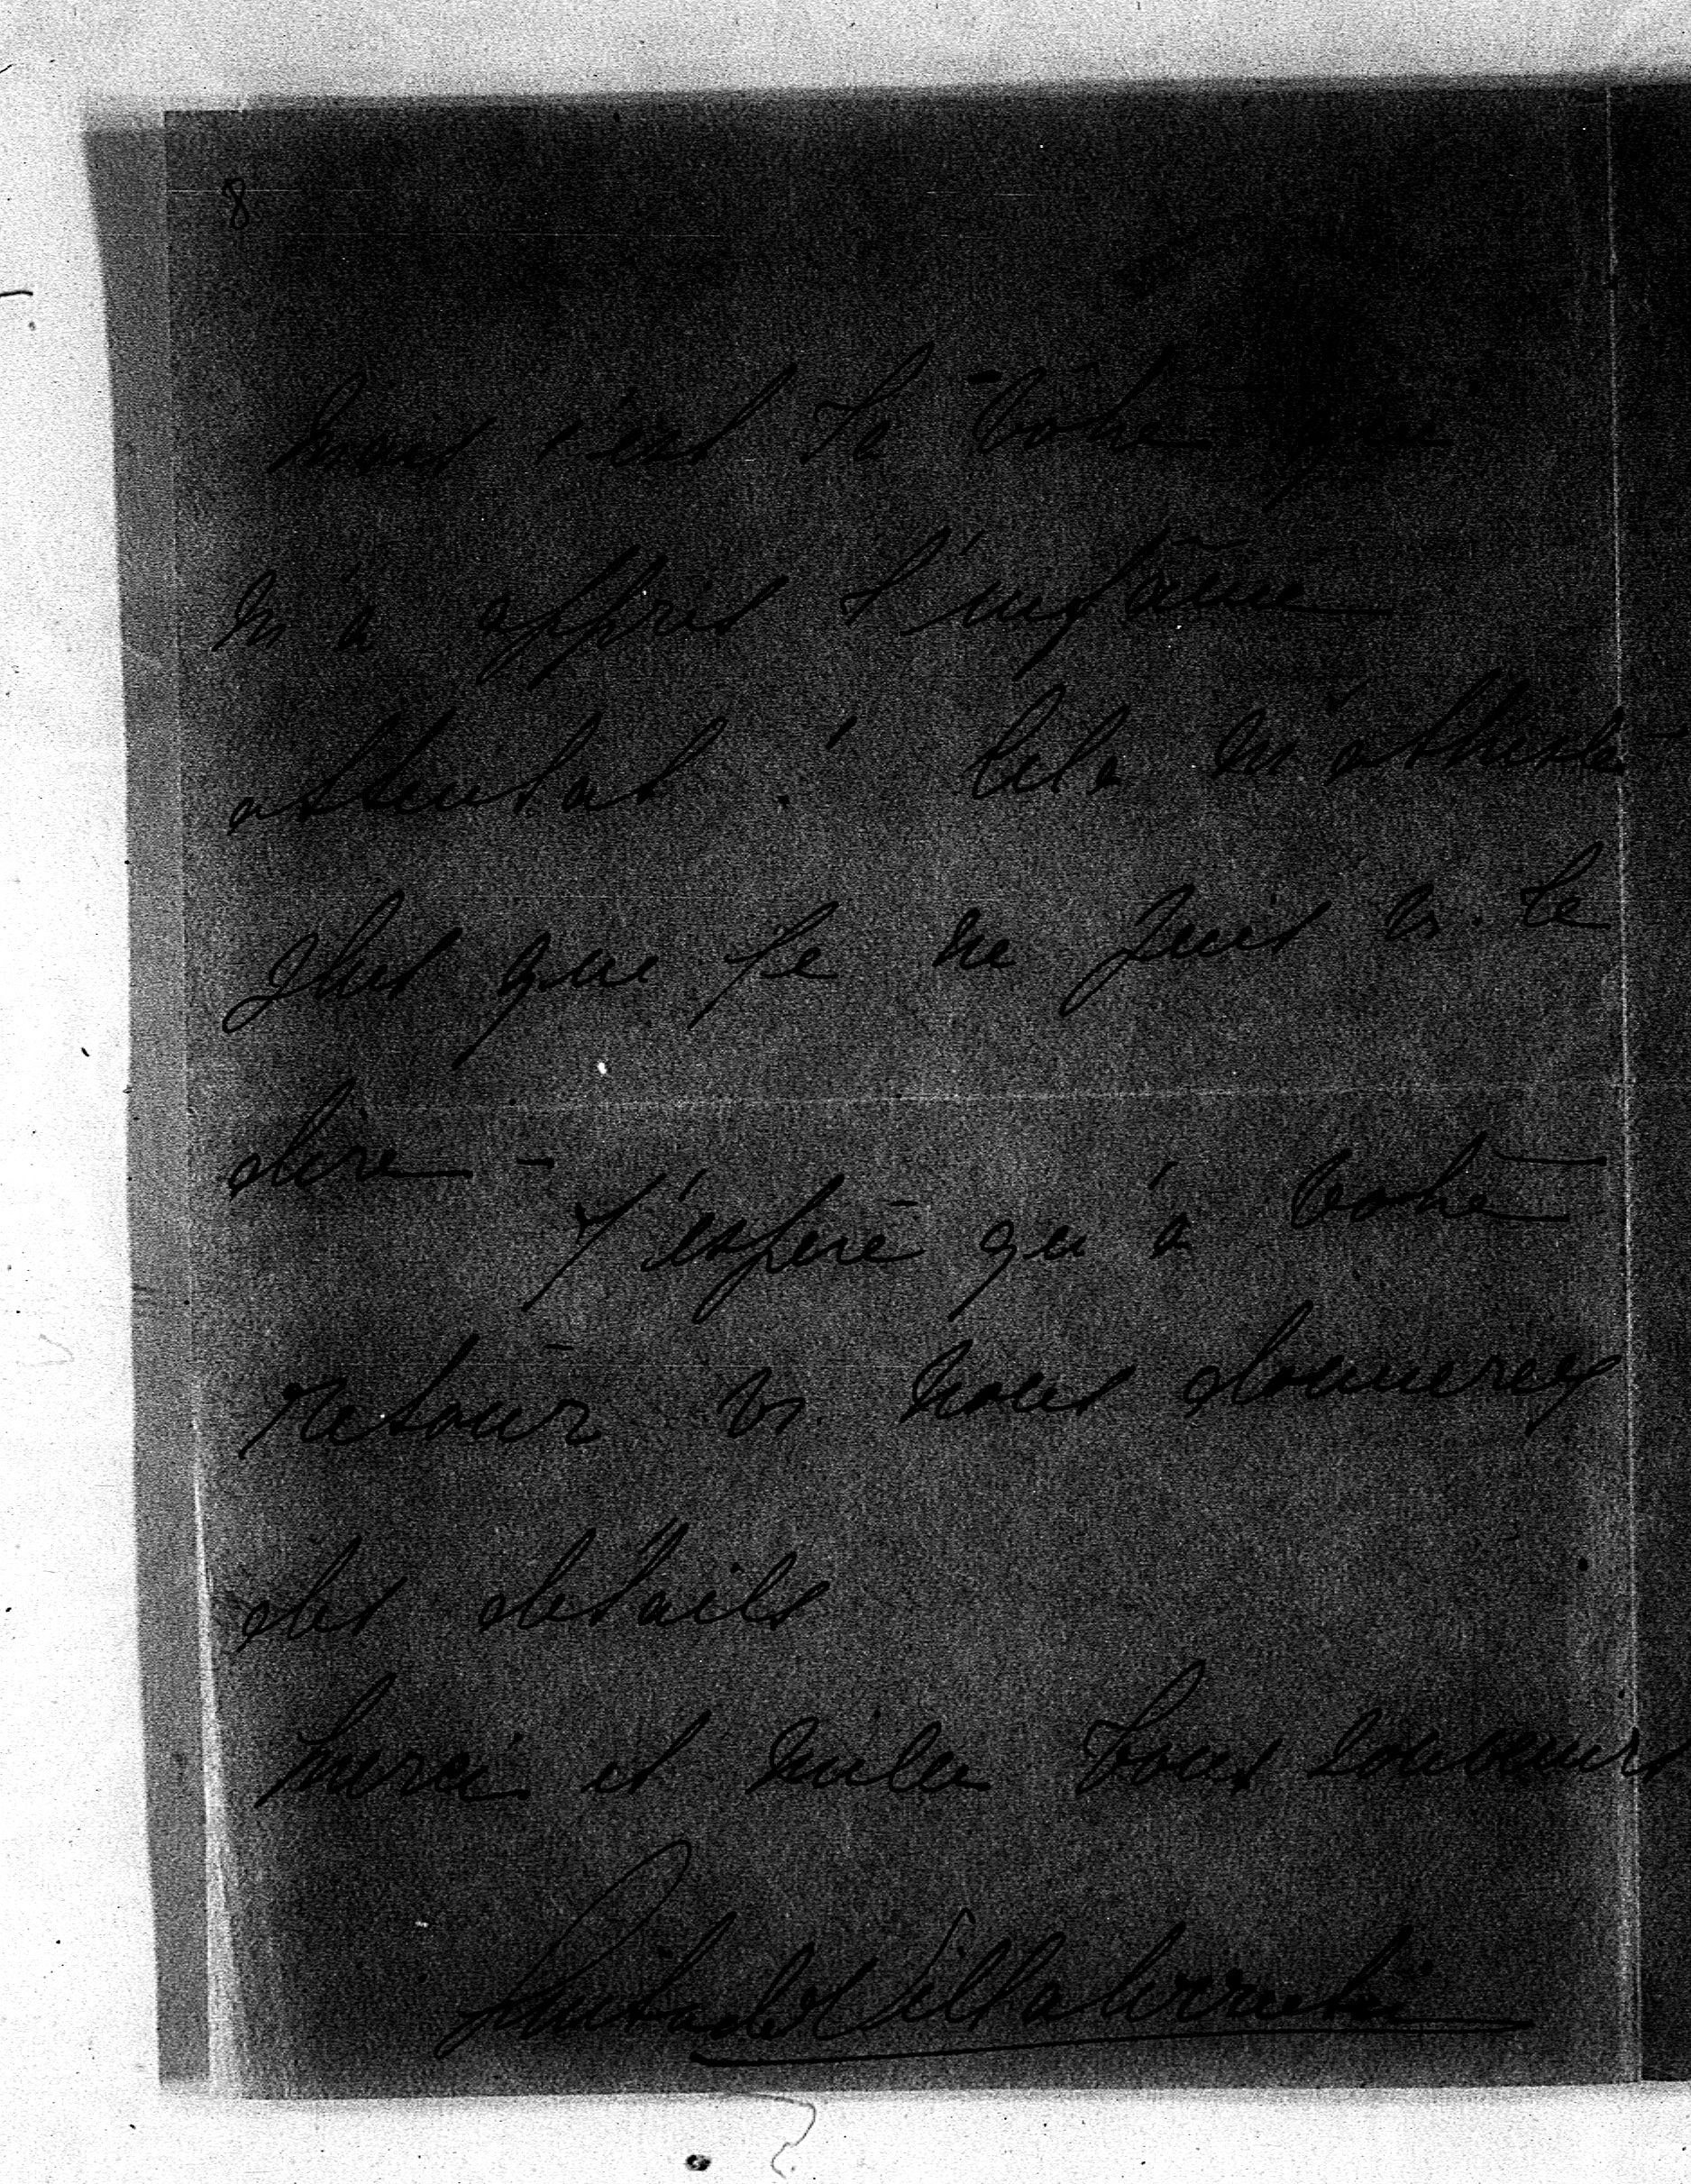 8
mais c'est la vôtre qui
m'a appris l'infâme
attentat ! Cela m'attriste
plus que je ne puis v. le
dire -
J'espère qu'à votre
retour v. nous donnerez
des détails
Merci et mille bons souvenirs
de Villaurrutia